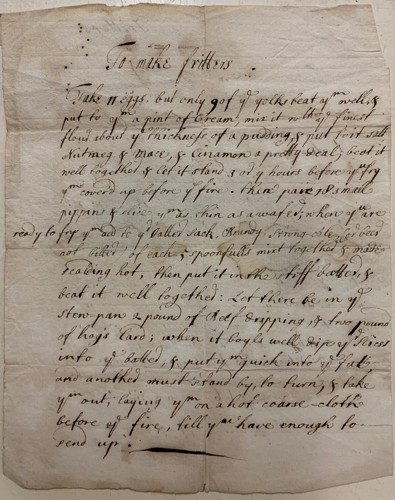 To make Fritters
Take 11 eggs, but only 9 of yᵉ yolks beat yᵐ well, &
put to yᵐ a pint of Cream, mix it wᵗʰ yᵉ finest
flour about yᵉ thickness of a pudding, & put to it salt
Nutmeg & Mace, & Cinamon a pretty deal; beat it
well together & let it stand 3 or 4 hours before yᵘ fry
yᵐ cover'd up before yᵉ fire. then pare 18 small
pippins & slice yᵐ as thin as a wafer, when yᵘ are
ready to fry yᵐ add to yᵉ batter Sack, Brandy, strong Ale
not bitter of each 5 spoonfulls mixt together & made
scalding hot, then put it in the stiff batter, &
beat it well together: Let there be in yᵉ
stew pan 2 pound of Beef dripping, & two pound
of hogs Lard; when it boyls well dip yᵉ slices
into yᵉ batter, & put yᵐ quick into yᵉ fat
and another must stand by, to turn, & take
yᵐ out, laying yᵐ on a hot coarse cloth
before yᵉ fire, till yᵘ have enough to
send up.